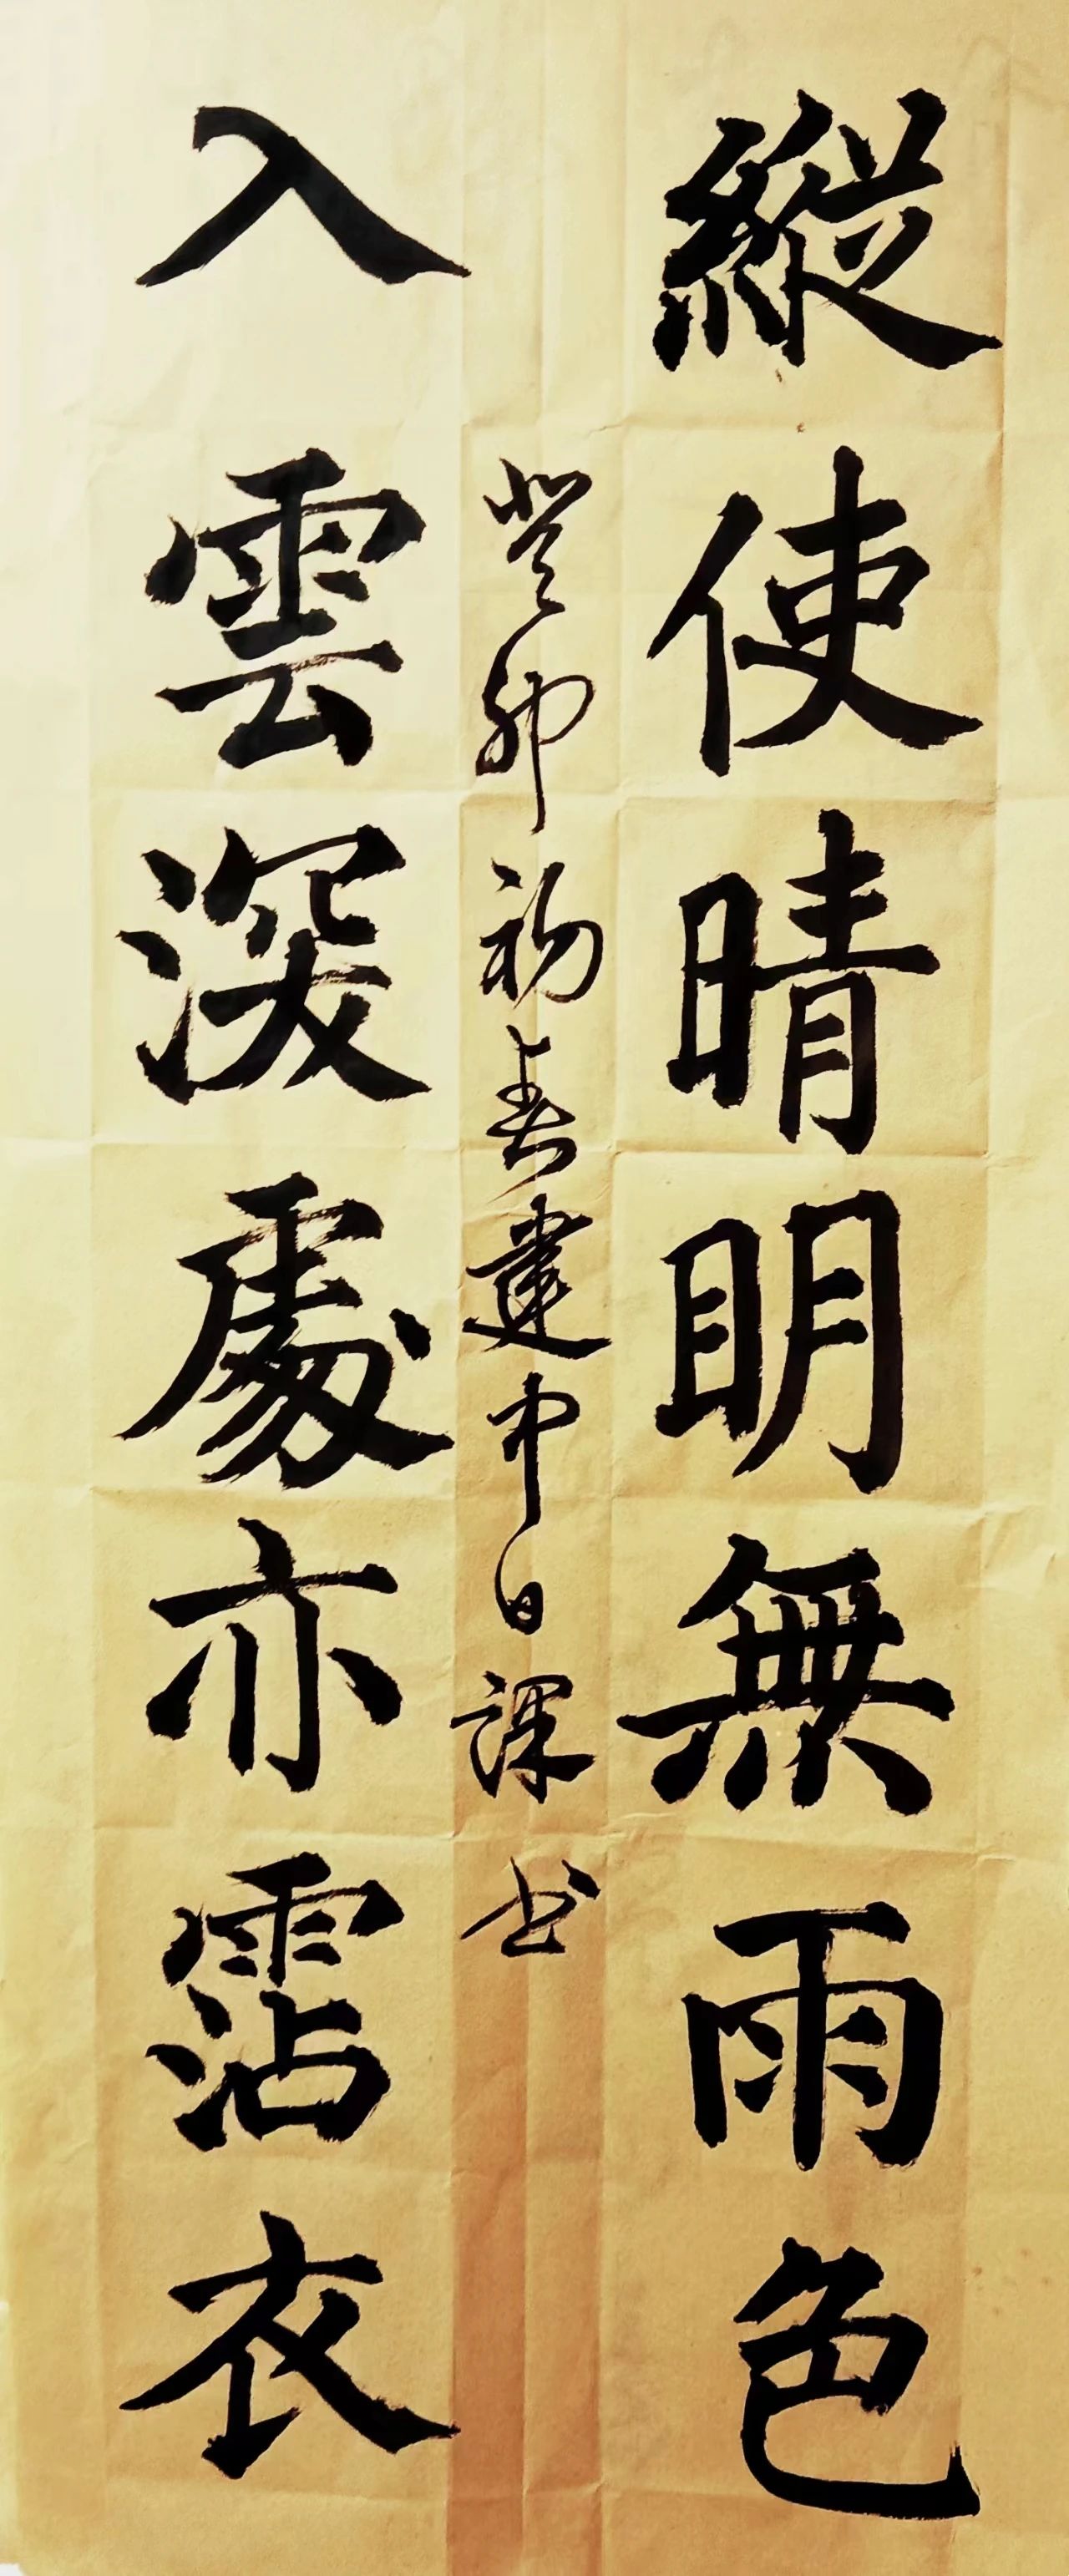 縱使晴明無雨色
入雲深處亦霑衣
癸卯初春建中日課书